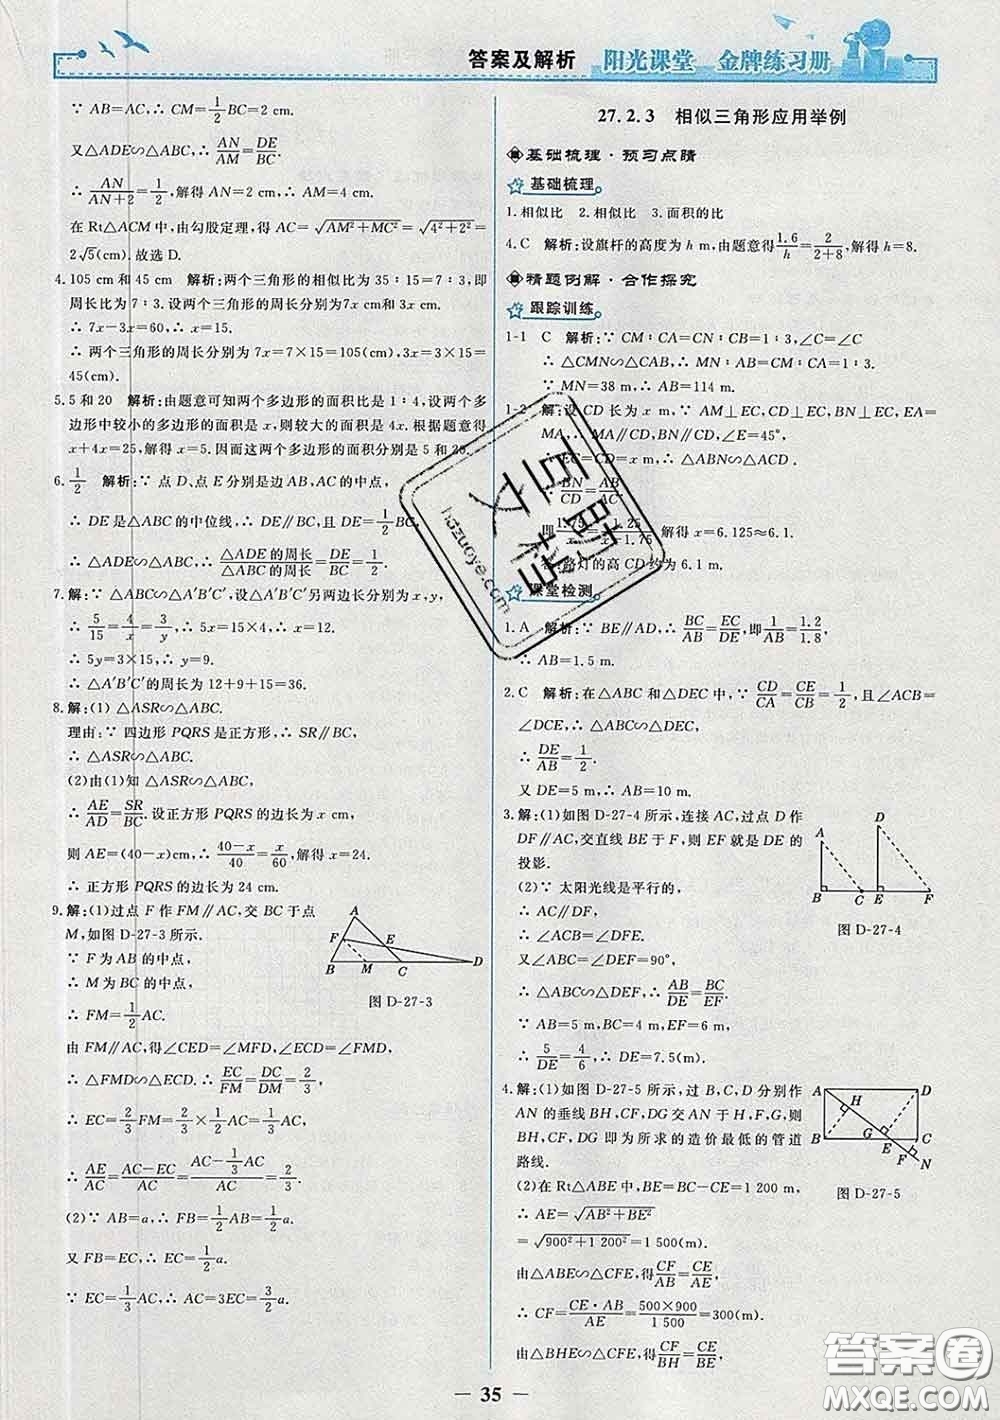 答案及解析 阳光课堂 金牌练习册
∵ AB=AC,∴ CM=1/2BC=2 cm.
又△ADE∽△ABC,∴ AN/AM=DE/BC.
∴ AN/(AN+2)=1/2,解得 AN=2 cm,∴ AM=4 cm.
在 Rt△ACM 中,由勾股定理,得 AC=√(AM²+MC²)=√(4²+2²)=
2√5(cm).故选 D.
4.105 cm 和 45 cm 解析:两个三角形的相似比为 35∶15=7∶3,即
周长比为 7∶3.设两个三角形的周长分别为7x cm 和 3x cm.
∴ 7x-3x=60,∴ x=15.
∴ 两个三角形的周长分别为 7x=7×15=105(cm),3x=3×15=
45(cm).
5.5 和 20 解析:由题意可知两个多边形的面积比是 1∶4,设两个多
边形中较小的多边形的面积是 x,则较大的面积是 4x.根据题意得
x+4x=25,解得 x=5.因而这两个多边形的面积分别是 5 和 20.
6.1/2 解析:∵ 点 D、点 E 分别是边 AB,AC 的中点,
∴ DE 是△ABC 的中位线,∴ DE∥BC,且 DE=1/2BC,
∴ △ADE∽△ABC,∴ △ADE的周长/△ABC的周长=DE/BC=1/2.
7.解:∵ △ABC∽△A′B′C′,设△A′B′C′另两边为 x,y,
∴ 5/15=4/x=3/y,∴ 5x=4×15,∴ x=12.
∴ 5y=3×15,∴ y=9.
∴ △A′B′C′的周长为 12+9+15=36.
8.解:(1) △ASR∽△ABC.
理由:∵ 四边形 PQRS 是正方形,∴ SR∥BC,
∴ △ASR∽△ABC.
(2)由(1)知 △ASR∽△ABC,
∴ AE/AD=SR/BC.设正方形 PQRS 的边长为 x cm,
则 AE=(40-x)cm,∴ (40-x)/40=x/60,解得 x=24.
∴ 正方形 PQRS 的边长为 24 cm.
9.解:(1)过点 F 作 FM∥AC,交 BC 于点
M,如图 D-27-3 所示.
∵ F 为 AB 的中点,
∴ M 为 BC 的中点,
∴ FM=1/2AC.
A
F
E
B
M
C
D
图 D-27-3
由 FM∥AC,得∠CED=∠MFD,∠ECD=∠FMD,
∴ △FMD∽△ECD.∴ EC/FM=DC/DM=2/3,
∴ EC=2/3FM=2/3×1/2AC=1/3AC,
∴ AE/AC=(AC-EC)/AC=(AC-1/3AC)/AC=2/3.
(2)∵ AB=a,∴ FB=1/2AB=1/2a.
又 FB=EC,∴ EC=1/2a.
∵ EC=1/3AC,∴ AC=3EC=3/2a.
27.2.3 相似三角形应用举例
基础梳理·预习点睛
基础梳理
1.相似比 2.相似比 3.面积的比
4.C 解析:设旗杆的高度为 h m,由题意得1.6/h=2/(2+8),解得 h=8.
精题例解·合作探究
跟踪训练
1-1 C 解析:∵ CM∶CA=CN∶CB=1∶3,∠C=∠C
∴ △CMN∽△CAB,∴ MN∶AB=CM∶CA=1∶3.
∵ MN=38 m,∴ AB=114 m.
1-2 解:设 CD 长为 x m,∵ AM⊥EC,CD⊥EC,BN⊥EC,EA=
MA,∴ MA∥CD,BN∥CD,∠E=45°,
∴ EC=CD=x m,∴ △ABN∽△ACD.
∴ BN/CD=AB/AC,
即1.75/x=1.25/(x-1.75),解得 x=6.125≈6.1.
答:路灯的高 CD 约为 6.1 m.
课堂检测
1.A 解析:∵ BE∥AD,∴ BC/AB=EC/DE,即1/AB=1.2/1.8,
∴ AB=1.5 m.
2.C 解析:在△ABC 和△DEC 中,∵ CD/CA=CE/CB=1/2,且∠ACB=
∠DCE,∴ △ABC∽△DEC,
∴ DE/AB=1/2.
又 DE=5 m,∴ AB=10 m.
3.解:(1)如图 D-27-4 所示,连接 AC,过点 D 作
DF∥AC,交直线 BE 于 F,则 EF 就是 DE 的
投影.
(2)∵ 太阳光线是平行的,
∴ AC∥DF,
∴ ∠ACB=∠DFE.
又∠ABC=∠DEF=90°,
∴ △ABC∽△DEF,∴ AB/DE=BC/EF.
∵ AB=5 m,BC=4 m,EF=6 m,
∴ 5/DE=4/6,∴ DE=7.5(m).
D
A
B
C
E
F
图 D-27-4
4.解:(1)如图 D-27-5 所示,过 B,C,D 分别作
AN 的垂线 BH,CF,DG 交 AN 于 H,F,G,则
BH,CF,DG 即为所求的造价最低的管道
路线.
(2)在 Rt△ABE 中,BE=BC-CE=1 200 m,
∴ AE=√(AB²+BE²)
=√(900²+1 200²)=1 500(m).
由△ABE∽△CFE,得CF/AB=CE/AE,
∴ CF=CE·AB/AE=500×900/1 500=300(m).
由△BHE∽△CFE,得CF/BH=CE/BE,
A
D
H
B
G
E
F
C
N
图 D-27-5
35
hdzuoye.com
答案圈
MXQE.COM